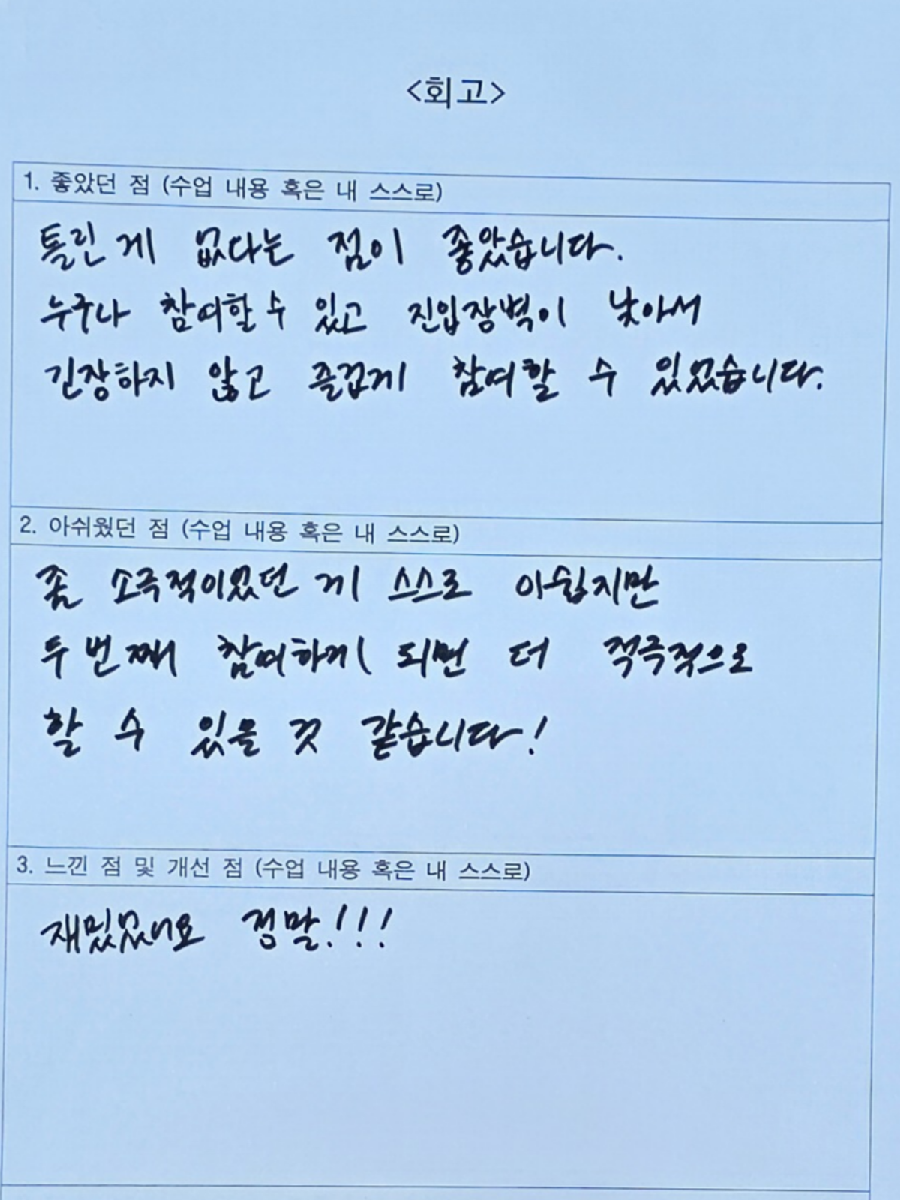 <회고>
1. 좋았던 점 (수업 내용 혹은 내 스스로)
틀린 게 없다는 점이 좋았습니다.
누구나 참여할 수 있고 진입장벽이 낮아서
긴장하지 않고 즐겁게 참여할 수 있었습니다.
2. 아쉬웠던 점 (수업 내용 혹은 내 스스로)
좀 소극적이었던 게 스스로 아쉽지만
두 번째 참여하게 되면 더 적극적으로
할 수 있을 것 같습니다!
3. 느낀 점 및 개선 점 (수업 내용 혹은 내 스스로)
재밌었어요 정말!!!